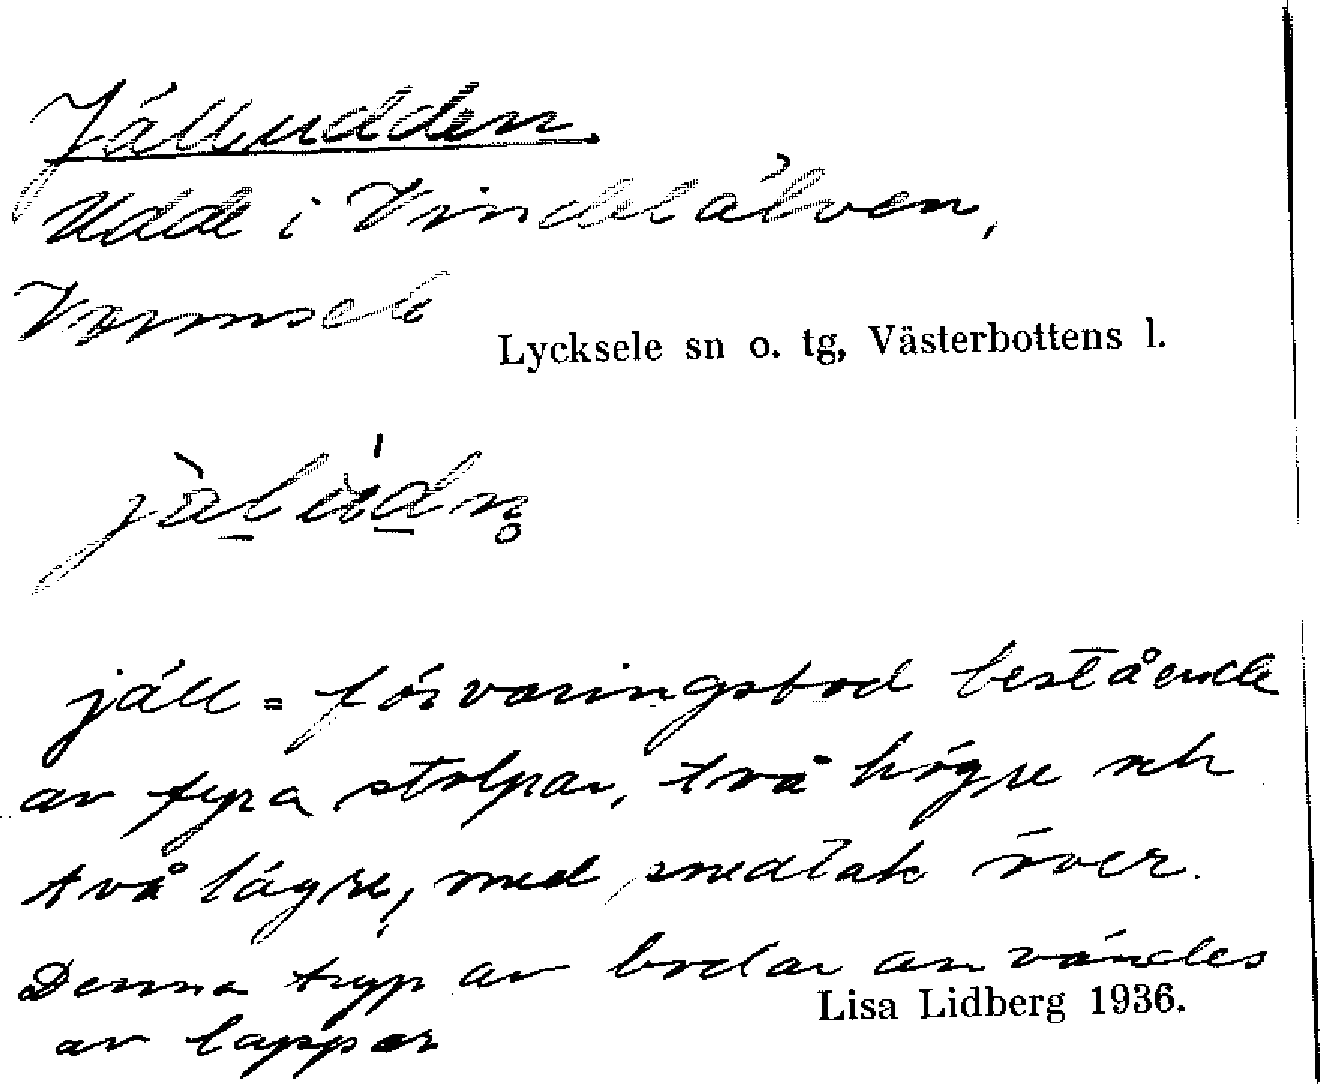 Jälludden
Udde i Vindelälven,
Vormsele
Lycksele sn o. tg, Västerbottens l.
jäll = förvaringsbod bestående
av fyra stolpar, två högre och
två lägre, med snedtak över.
Denna typ av bodar användes
av lappar
Lisa Lidberg 1936.